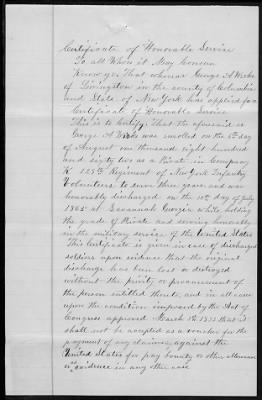 Certificate of Honorable Service
To all Whom it May Concern
Know ye, That whereas George A Weeks
of Livingston in the county of Columbia
and State of New York has applied for a
Certificate of Honorable Service
This is to Certify, that the aforesaid
George A Weeks was enrolled on the day
of August one thousand eight hundred
and sixty two as a Private in Company
K 128th Regiment of New York Infantry
Volunteers to serve three years and was
honorably discharged on the 12th day of July
1865 at Savannah Georgia while holding
the grade of Private and serving honorably
in the military service of the United States
This Certificate is given in case of discharged
soldiers upon evidence that the original
discharge has been lost or destroyed
without the privity or procurement of
the person entitled thereto, and in all cases
upon the condition imposed by the Act of
Congress approved March 3d 1873 that it
shall not be accepted as a voucher for the
payment of any claims against the
United States for pay bounty or other allowance
or as evidence in any other case